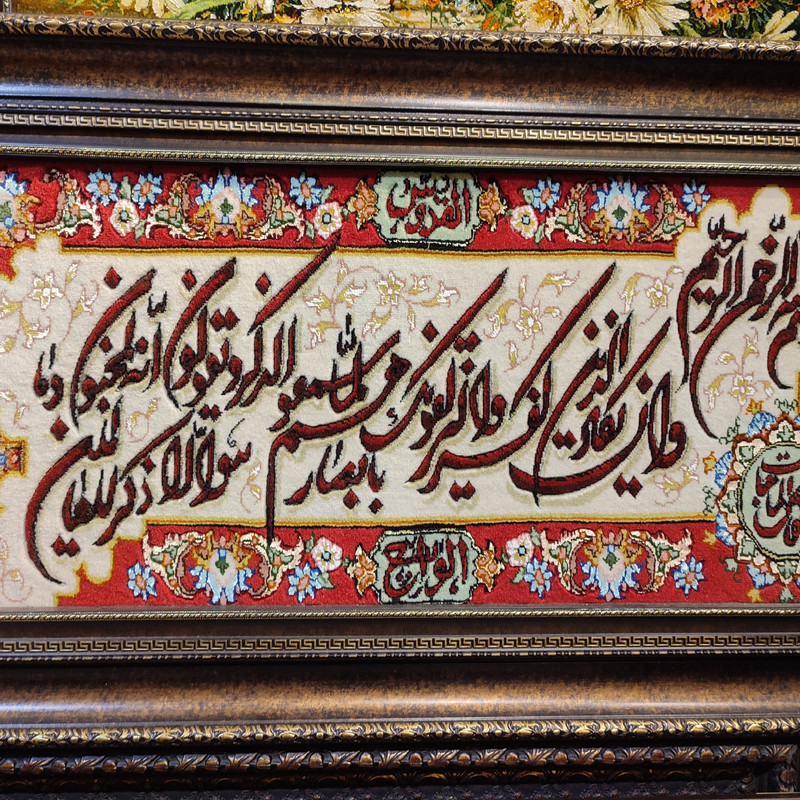 القدوس
الرحمن الرحیم
وان یکاد الذین کفروا لیزلقونک بابصارهم لما سمعوا الذکر و یقولون انه لمجنون و ما
هو الا ذکر للعالمین